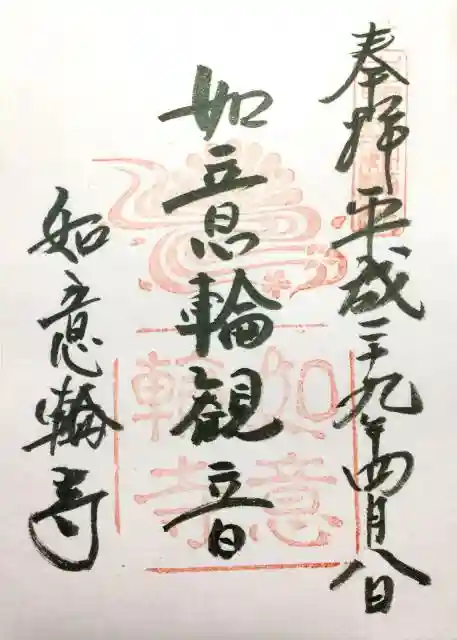 奉拝 平成二十九年四月八日
如意輪観音
如意輪寺
如意輪寺